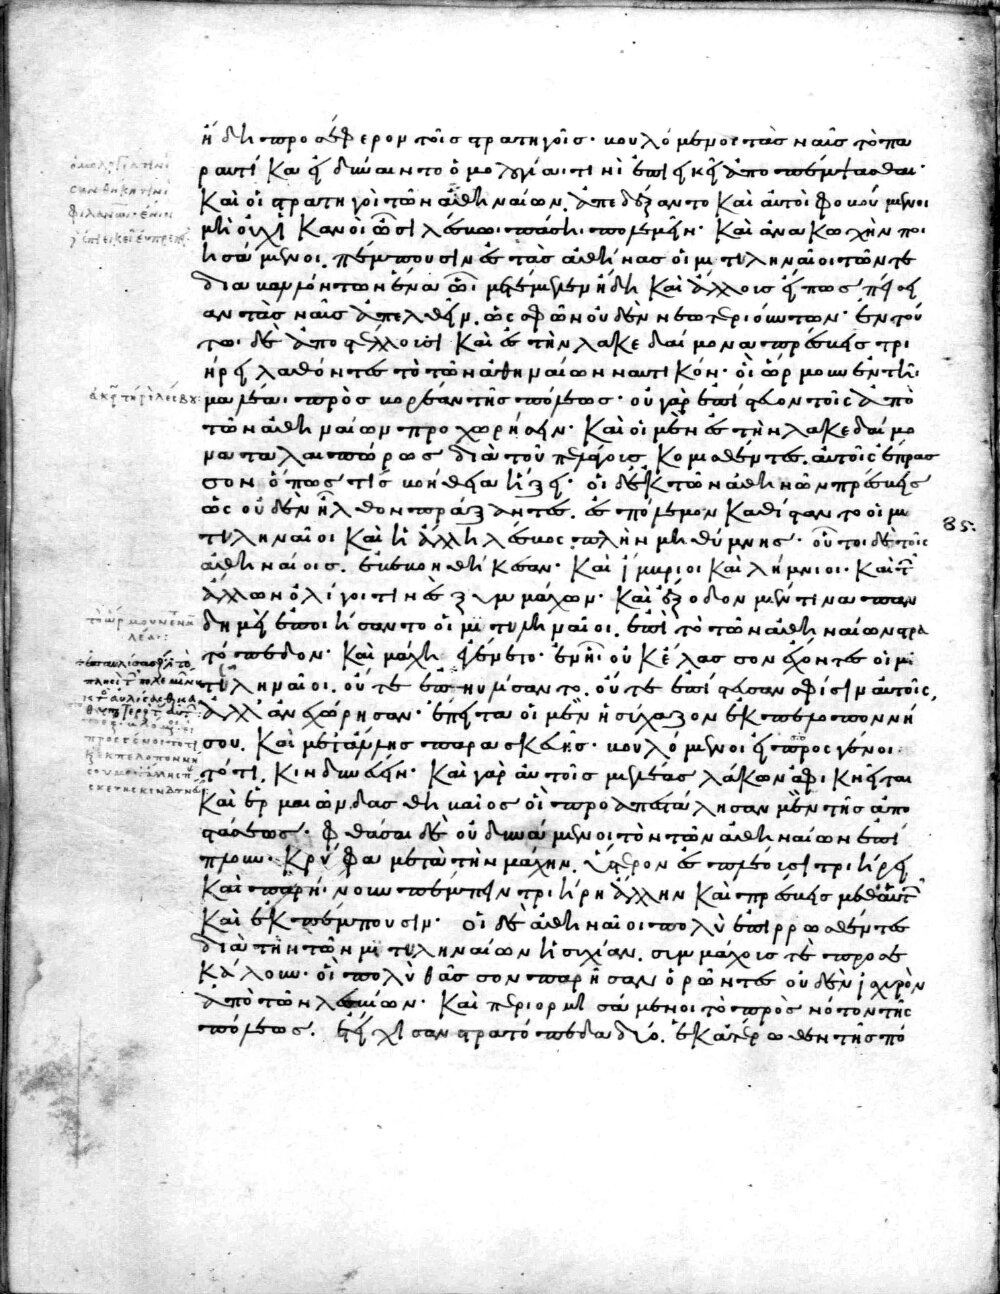 ἤδη προσέφερον τοῖς στρατηγοῖς· βουλόμενοι τὰς ναῦς τὸ πα
ραυτί και εἰ δύναιντο ὁμολογίαι τινὶ ἐπιεικεῖ ἀποπέμψασθαι·
Καὶ οἱ στρατηγοὶ τῶν ἀθηναίων, ἀπεδέξαντο Καὶ αὐτοὶ φοβούμενοι
μὴ οὐχ ἱκανοὶ ὦσι λέσβωι πάσηι πολεμεῖν· Καὶ ἀνακωχὴν ποι
ησάμενοι, πέμπουσιν ἐς τὰς ἀθήνας οἱ μιτυληναῖοι τῶν τε
διαβαλόντων ἕνα ὧι μετέμελεν ἤδη Καὶ ἄλλους εἴ πως πείσει
αν τὰς ναῦς ἀπελθεῖν, ὡς σφῶν οὐδὲν νεωτεριούντων· ἐν τού
τωι δὲ ἀποστέλλουσι Καὶ ἐς τὴν λακεδαίμονα πρέσβεις τρι
ήρει λαθόντες τὸ τῶν ἀθηναίων ναυτικόν· οἳ ὥρμουν ἐν τῆι
μαλέαι πρὸς βορέαν τῆς πόλεως· οὐ γὰρ ἐπίστευον τοῖς ἀπὸ
τῶν ἀθηναίων προχωρήσειν· Καὶ οἱ μὲν ἐς τὴν λακεδαίμο
να ταλαιπώρως διὰ τοῦ πελάγους Κομισθέντες, αὐτοῖς ἔπρασ
σον ὅπως τὶς βοήθεια ἥξει· οἱ δ' ἐκ τῶν ἀθηνῶν πρέσβεις
ὡς οὐδὲν ἦλθον πράξαντες, ἐς πόλεμον Καθίσταντο οἱ μι
τυληναῖοι Καὶ ἡ ἄλλη λέσβος πλὴν μηθύμνης· οὗτοι δὲ τοῖς
ἀθηναίοις ἐβεβοηθήκεσαν· Καὶ ἴμβριοι Καὶ λήμνιοι· Καὶ τ
ἄλλων ὀλίγοι τινὲς ξυμμάχων· Καὶ ἔξοδον μέν τινα παν
δημεὶ ἐποιήσαντο οἱ μιτυληναῖοι, ἐπὶ τὸ τῶν ἀθηναίων στρα
τόπεδον· Καὶ μάχη ἐγένετο· ἐν ἧι οὐκ ἔλασσον ἔχοντες οἱ μι
τυληναῖοι, οὔτε ἐπηυλίσαντο, οὔτε ἐπίστευσαν σφίσιν αὐτοῖς,
ἀλλ' ἀνεχώρησαν· ἔπειτα οἱ μὲν ἡσύχαζον ἐκ πελοποννή
σου, Καὶ μετ' ἄλλης παρασκευῆς· βουλόμενοι εἰ προσγένοι
τό τι, Κινδυνεύειν· Καὶ γὰρ αὐτοῖς μελέας λάκων ἀφικνεῖται
Καὶ ἑρμαιώνδας θηβαῖος οἳ προαπεστάλησαν μὲν τῆς ἀπο
στάσεως· φθάσαι δὲ οὐ δυνάμενοι τὸν τῶν ἀθηναίων ἐπί
πλουν· Κρύφα μετὰ τὴν μάχην ὕστερον ἐσπλέουσι τριήρει
Καὶ παρήινουν πέμπειν τριήρη ἄλλην Καὶ πρέσβεις μεθ' αὑτ
Καὶ ἐκπέμπουσιν· οἱ δὲ ἀθηναῖοι πολὺ ἐπιρρωσθέντες
διὰ τὴν τῶν μιτυληναίων ἡσυχίαν, συμμάχους τὲ προσε
κάλουν· οἳ πολὺ θᾶσσον παρῆσαν ὁρῶντες οὐδὲν ἰσχυρὸν
ἀπὸ τῶν λεσβίων· Καὶ περιορμησάμενοι τὸ πρὸς νότον τῆς
πόλεως, ἐτείχισαν στρατόπεδα δύο, ἑκατέρωθεν τῆς πό
85.